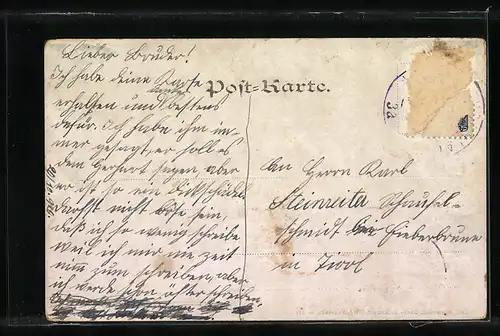 Lieber Bruder!
Ich habe deine Karte
erhalten und bestens
dafür. Ich habe ihm im-
mer gesagt, er soll es
dem Gerhart sagen, aber
er ist so ein Dickschädel
darfst nicht böse sein,
daß ich so wenig schreibe
weil ich mir nie Zeit
nem zum schreiben, aber
ich werde schon öfter schreiben
Post-Karte.
An Herrn Karl
Steinreita Schaufel-
schmidt Fieberbrunn
in Tirol